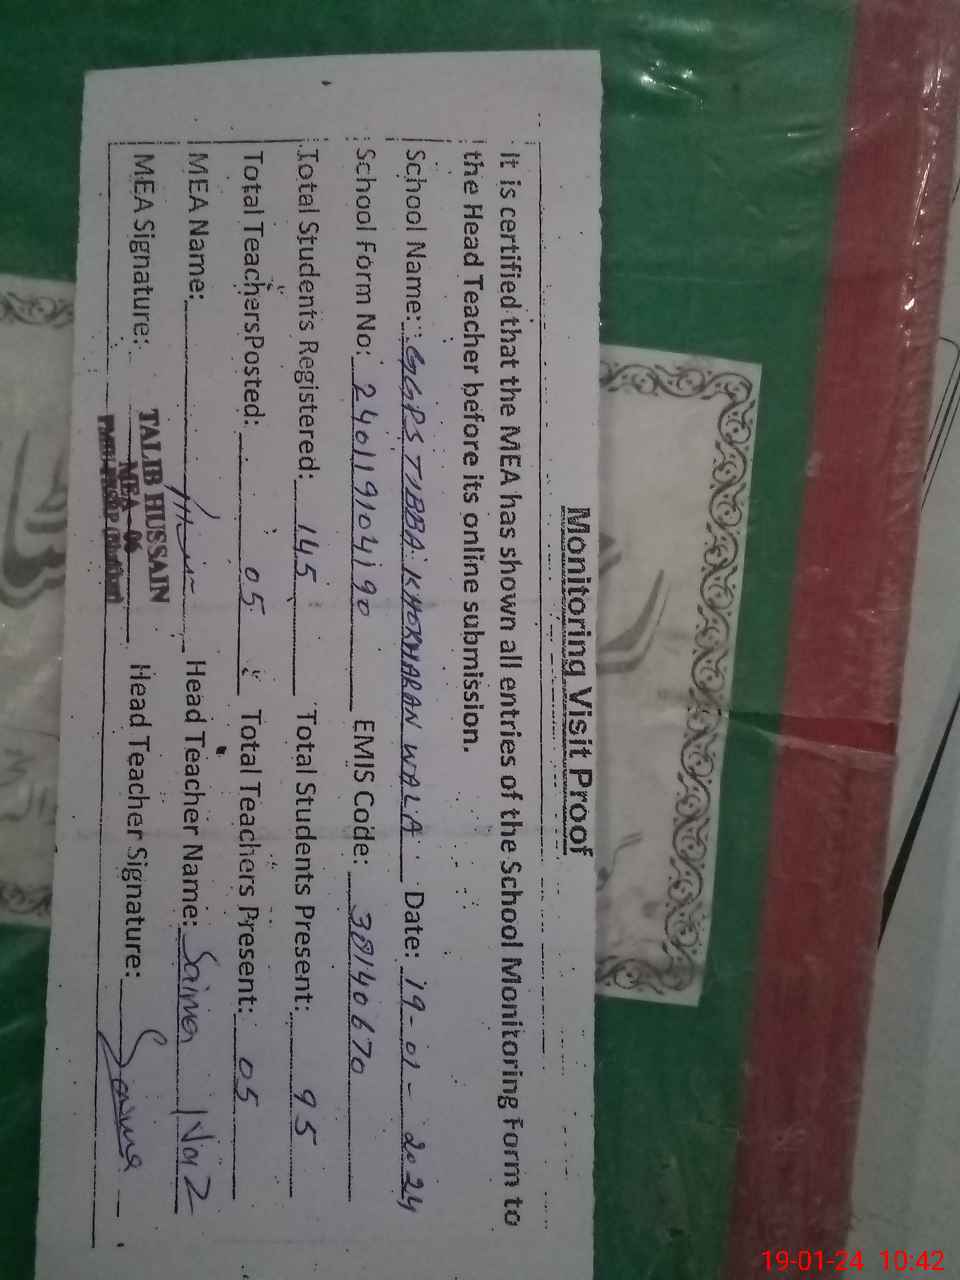 Monitoring Visit Proof
It is certified that the MEA has shown all entries of the School Monitoring Form to
the Head Teacher before its online submission.
School Name: GGPS TIBBA KHOKHARAN WALA Date: 19-01-2024
School Form No: 240119104190 EMIS Code: 38140670
Total Students Registered: 145 Total Students Present: 95
Total TeachersPosted: 05 Total Teachers Present: 05
MEA Name: Head Teacher Name: Saima Naz
MEA Signature: TALIB HUSSAIN Head Teacher Signature: Saima
MEA - 06
19-01-24 10:42